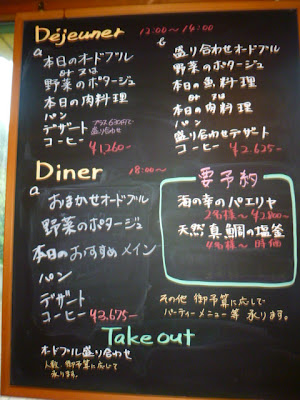 Déjeuner 12:00～14:00
a
本日のオードブル
or 又は
野菜のポタージュ
本日の肉料理
パン
デザート プラス630円で盛り合わせ
コーヒー ¥1,260－
b
盛り合わせオードブル
野菜のポタージュ
本日の魚料理
or 又は
本日の肉料理
パン
盛り合わせデザート
コーヒー ¥2,625－
Diner 18:00～
a
おまかせオードブル
野菜のポタージュ
本日のおすすめメイン
パン
デザート
コーヒー ¥3,675－
要予約
海の幸のパエリヤ
2名様～ ¥2,800～
天然真鯛の塩釜
4名様～ 時価
その他 御予算に応じて
パーティーメニュー等 承ります。
Take out
オードブル盛り合わせ
人数、御予算に応じて
承ります。